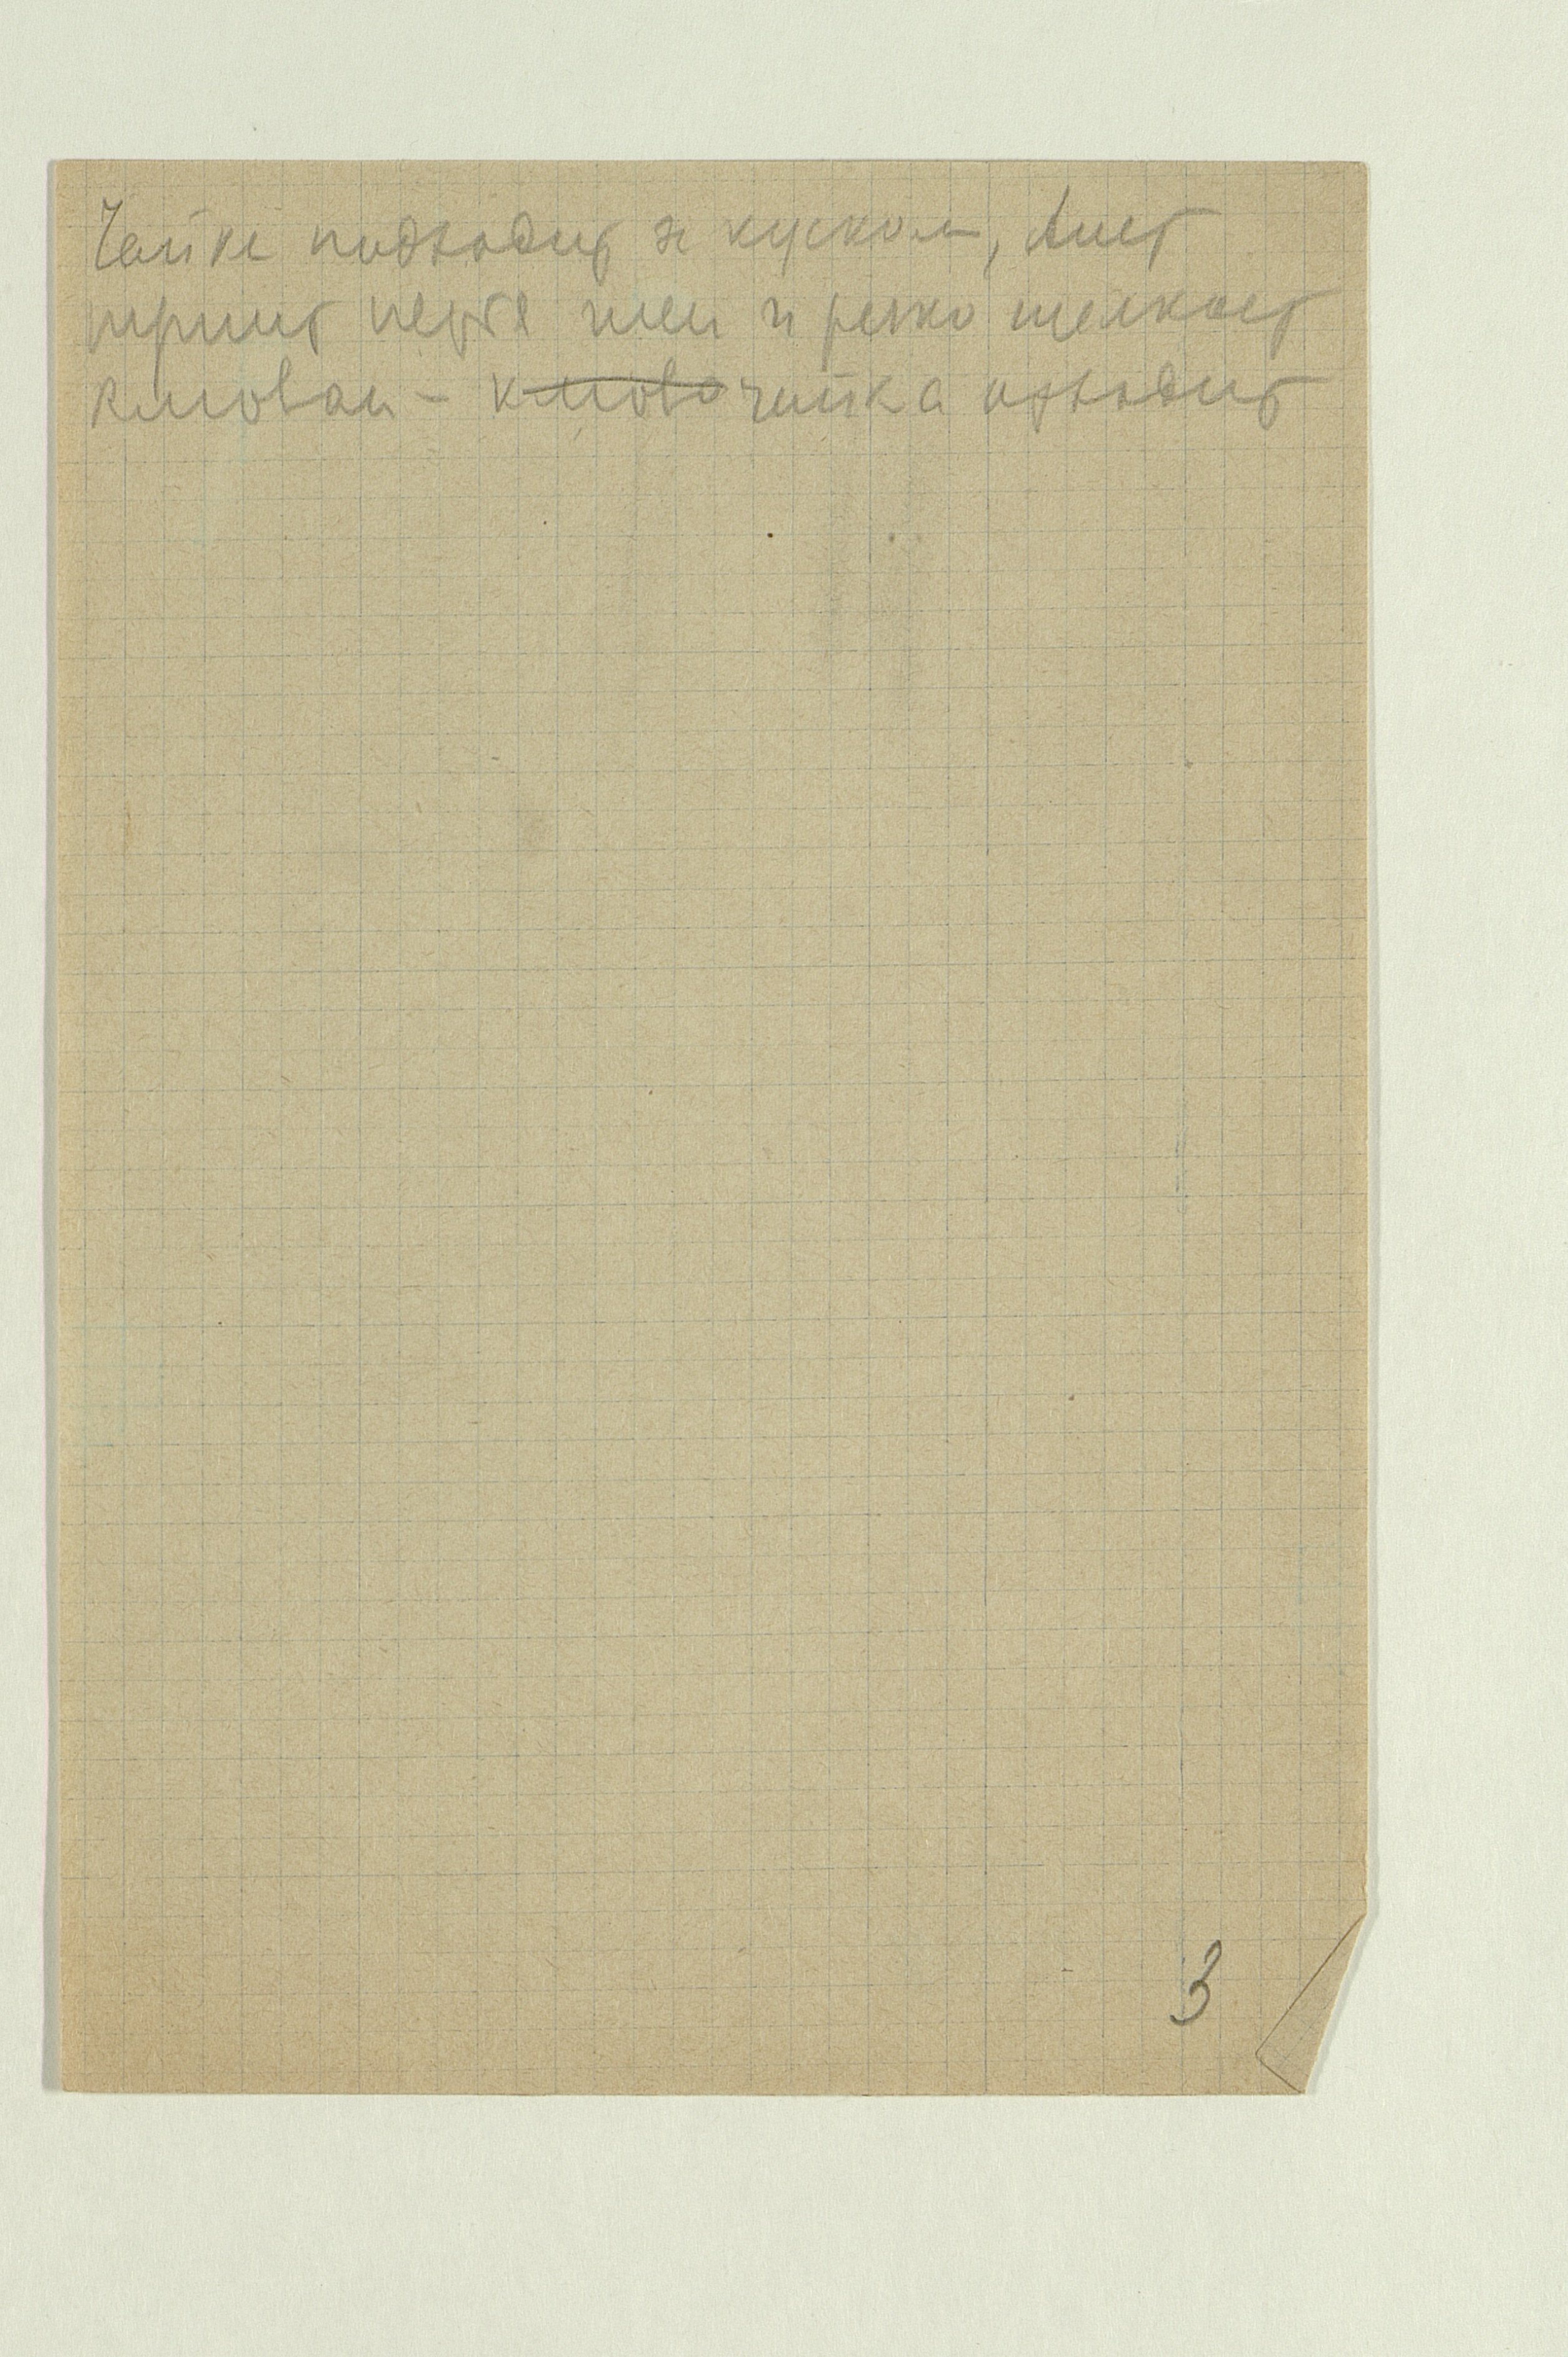 Чайка подходит за куском, Аист
ершит перья шеи и резко щелкает
клювом – клюво чайка отходит
3